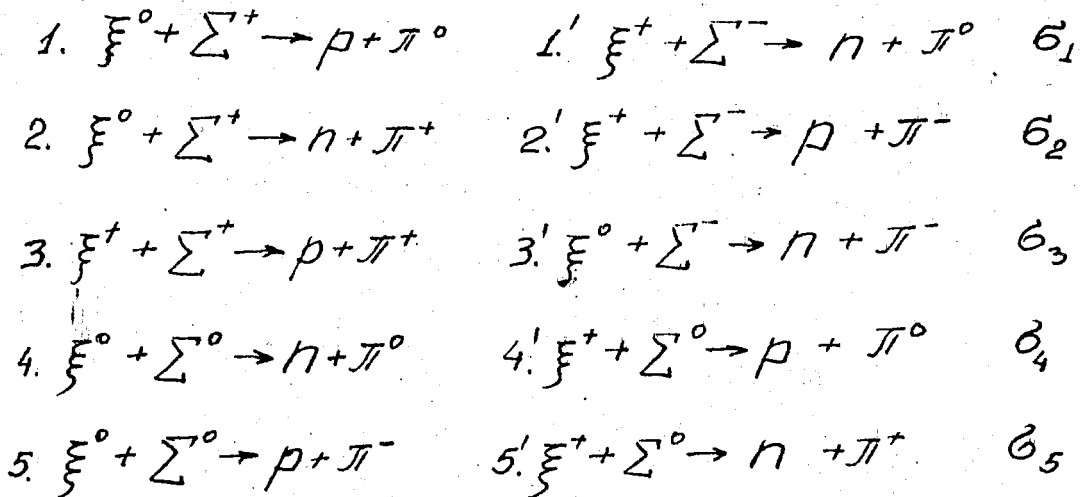 1. ξ⁰ + Σ⁺ → p + π⁰ 1.' ξ⁺ + Σ⁻ → n + π⁰ σ₁
2. ξ⁰ + Σ⁺ → n + π⁺ 2.' ξ⁺ + Σ⁻ → p + π⁻ σ₂
3. ξ⁺ + Σ⁺ → p + π⁺ 3.' ξ⁰ + Σ⁻ → n + π⁻ σ₃
4. ξ⁰ + Σ⁰ → n + π⁰ 4.' ξ⁺ + Σ⁰ → p + π⁰ σ₄
5. ξ⁰ + Σ⁰ → p + π⁻ 5.' ξ⁺ + Σ⁰ → n + π⁺ σ₅